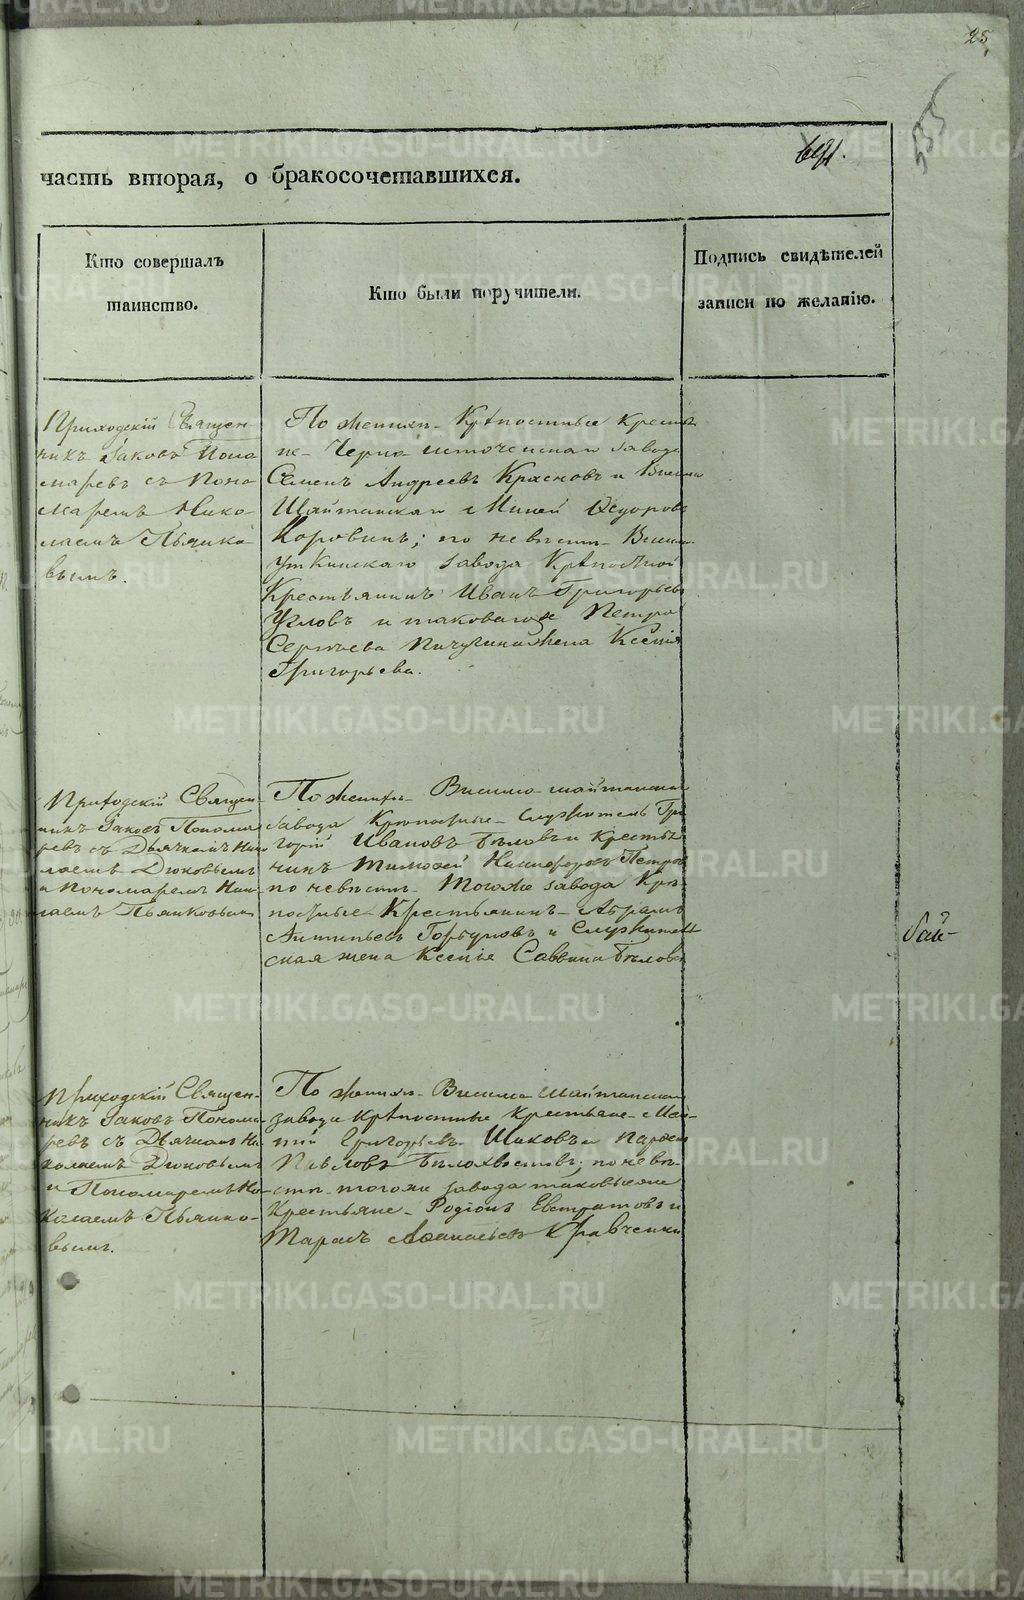 25
535
часть вторая, о бракосочетавшихся.
Кто совершалъ
таинство.
Кто были поручители.
Подпись свидѣтелей
записи по желанію.
Приходскій Священ-
никъ Іаковъ Поно
маревъ съ Поно
маремъ Нико-
лаемъ Пьянко-
вымъ.
По женихѣ Крѣпостные Кресть
не Черно источенскаго завода
Семенъ Андреевъ Красновъ и Висимо
Шайтанскаго Миней Ѳедоровъ
Коровинъ; по невѣстѣ Висимо
уткинскаго завода Крѣпостной
Крестьянинъ Иванъ Григорьевъ
Угловъ и таковагоже Петра
Сергѣева Пичугина жена Ксенія
Григорьева.
Приходскій Священ-
никъ Іаковъ Понома
ревъ съ Дьячкомъ Ник
лаемъ Дюковымъ
и Пономаремъ Ник
лаемъ Пьянковымъ
По женихѣ Висимо-шайтанскаго
завода Крѣпостные Служитель Гри
горій Ивановъ Бѣловъ и Крестья
нинъ Тимоѳей Никифоровъ Петровъ
по невѣстѣ Тогоже завода Крѣ
постные Крестьянинъ Абрамъ
Антипьевъ Горбуновъ и Служитель
ская жена Ксенія Саввина Бѣлова
бай-
Приходскій Священ-
никъ Іаковъ Понома
ревъ съ Дьячкомъ Ни
колаемъ Дюковымъ
и Пономаремъ Ни-
колаемъ Пьянко-
вымъ.
По женихѣ Висимо шайтанскаго
завода Крѣпостные Крестьяне
Григорьевъ Шиковъ и
Павловъ Бѣлохвостовъ; по невѣ-
стѣ тогоже завода таковыеже
Крестьяне Родіонъ Евстратовъ и
Тарасъ Аѳанасьевъ Кравченки
METRIKI.GASO-URAL.RU